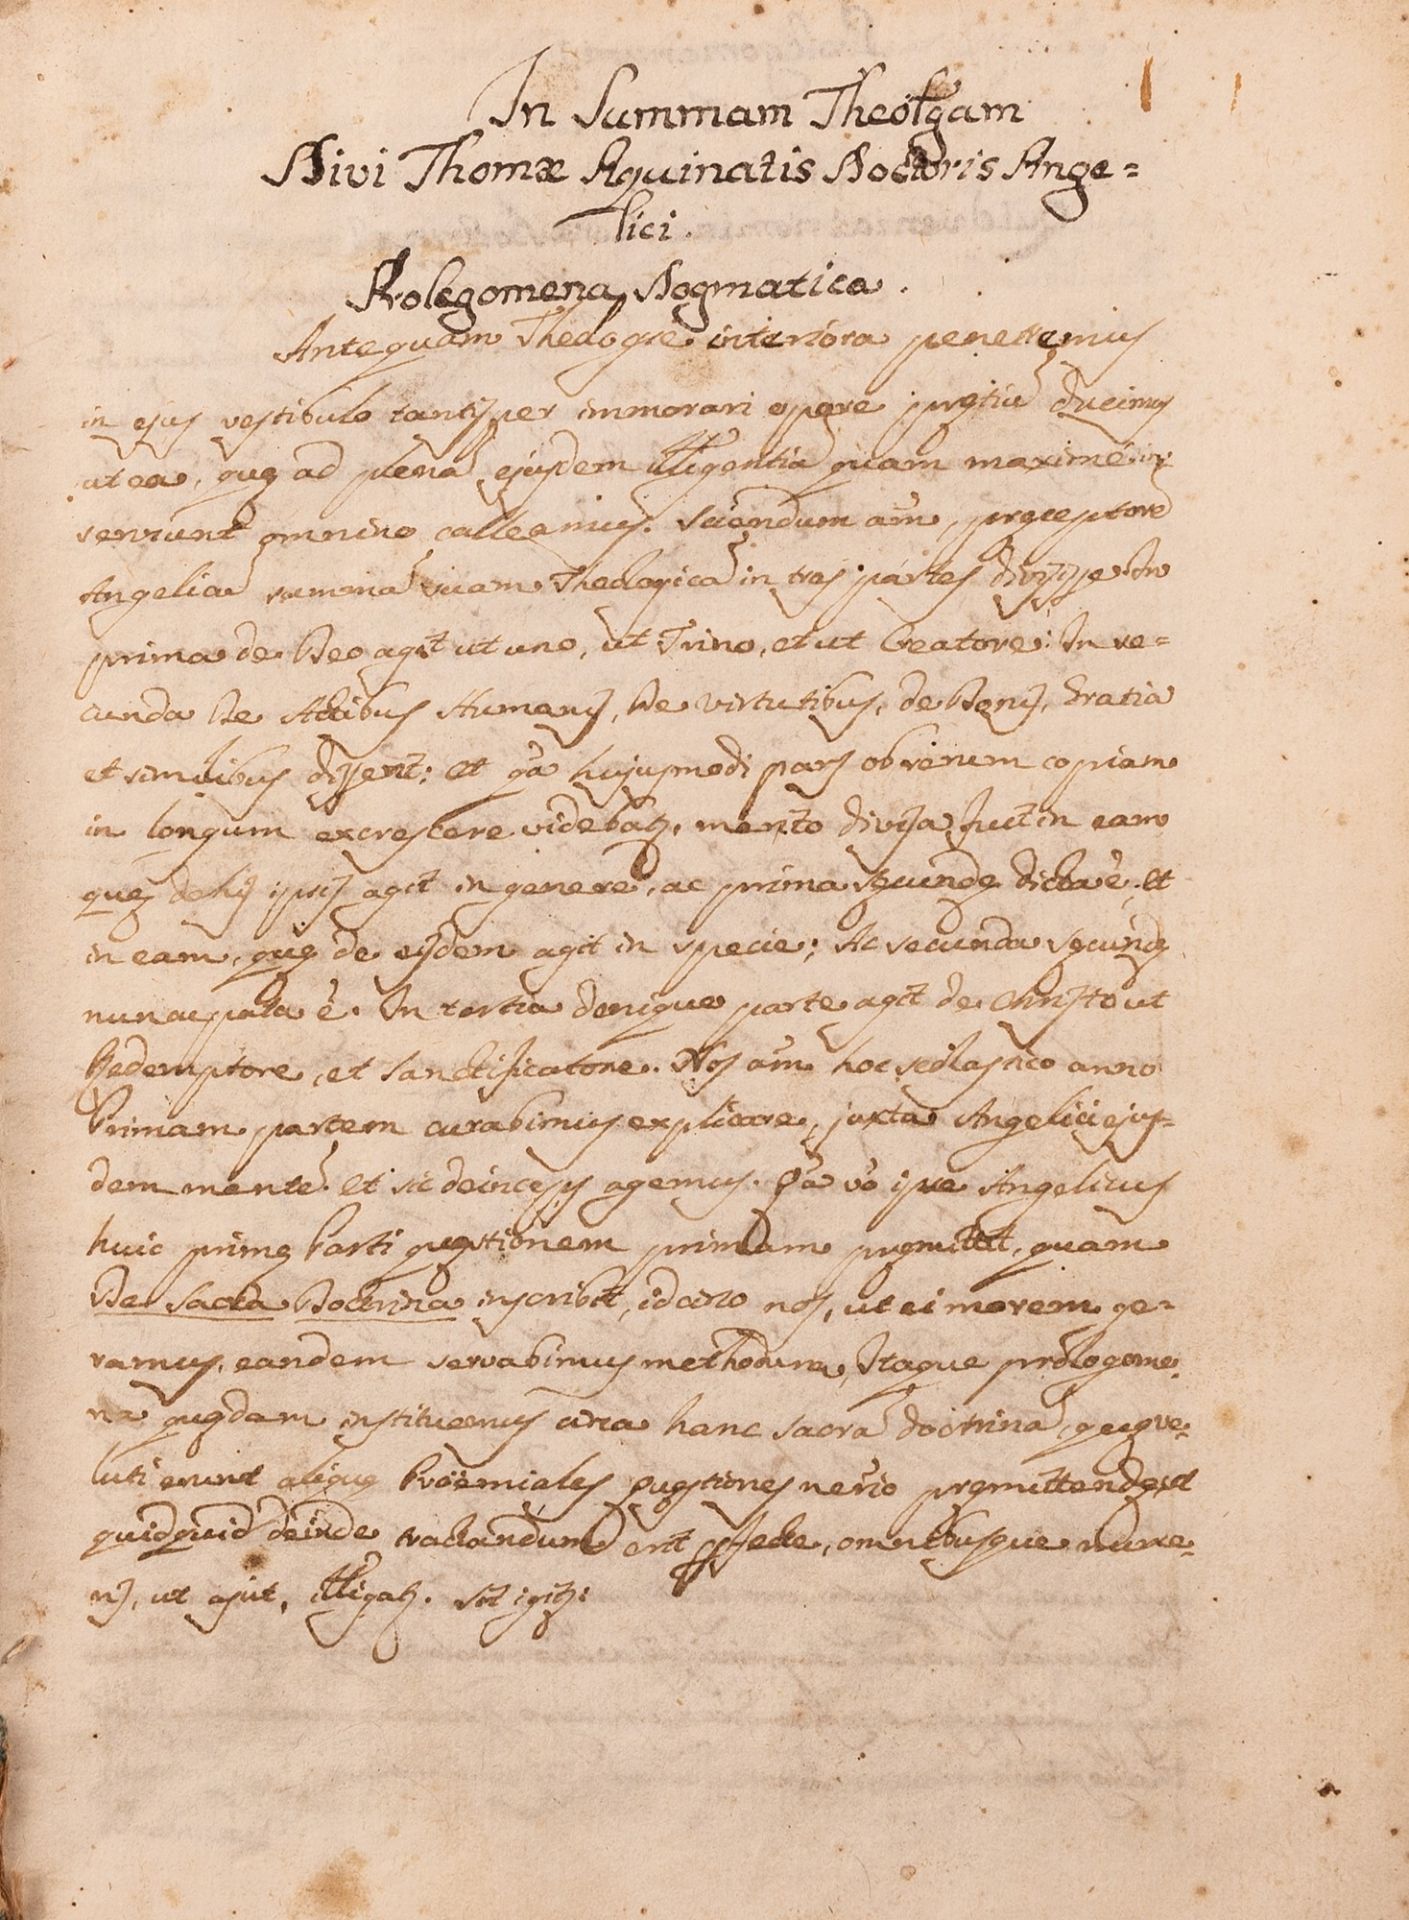 In Summam Theõlgam
Divi Thomæ Aquinatis Doctoris Ange=
lici.
Prolegomena Dogmatica.
Antequam Theologię interiora penetremus
in ejus vestibulo tantisper immorari operę prętiũ ducimus
ut ea, quę ad plenã ejusdem ĩtligentiã quam maximè in=
serviunt omnino calleamus. Sciendum aũm, pręceptorẽ
Angelicũ summã suam Theologicã in tres partes divisisse. In
prima de Deo agit ut uno, ut Trino, et ut Creatore: In se=
cunda De Actibus Humanis, De virtutibus, de Donis, Gratia
et similibus disserit: et qã hujusmodi pars ob rerum copiam
in longum excrescere videbatz, merito divisa fuit in eam
quę de his ipsis agit in genere, ac prima sęcundę dicta ẽ, et
in eam, quę de eisdem agit in specie; Ac secunda sęcundę
nuncupata ẽ. In tertia denique parte agit de Christo ut
Redemptore, et Sanctificatore. Nos aũm hoc scõlastico anno
Primam partem curabimus explicare, juxta Angelici ejus=
dem mentẽ. et sic deinceps agemus. Qã võ ipse Angelicus
huic primę Parti quęstionem primam pręmittit, quam
De Sacra Doctrina inscribit, idcirco nos, ut ei morem ge=
ramus, eandem servabimus methodum, Itaque prolegome=
na quędam instituemus circa hanc sacrã doctrinã, quę ve=
luti erunt aliquę Proemiales quęstiones pręmittendę, ut
quidquid deinde tractandum erit omnibusque nume=
ris, ut ajut, ĩtligatz. Sit igitz: